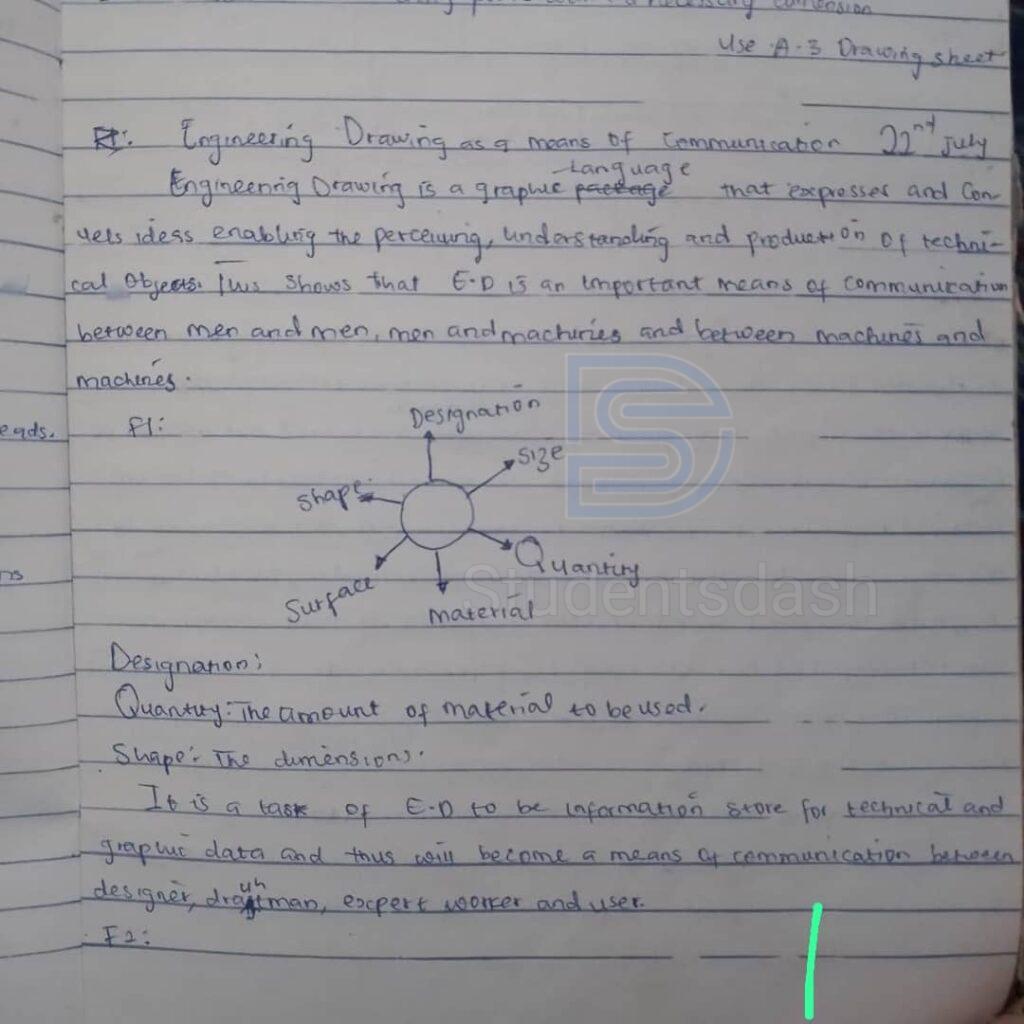 necessary dimension
Use A-3 Drawing sheet
Engineering Drawing as a means of Communication 22nd July
Language
Engineering Drawing is a graphic package that expresses and Con
veis ideas enabling the perceiving, understanding and production of techni-
cal Objects. This shows that E.D is an important means of communication
between men and men, men and machines and between machines and
machines.
eads.
F1:
Designation
Size
Shape
Quantity
Surface
material
Studentsdash
ns
Designation:
Quantity: The amount of material to be used.
Shape: The dimensions.
It is a task of E.D to be information store for technical and
graphic data and thus will become a means of communication between
designer, draughtman, expert worker and user.
F2: